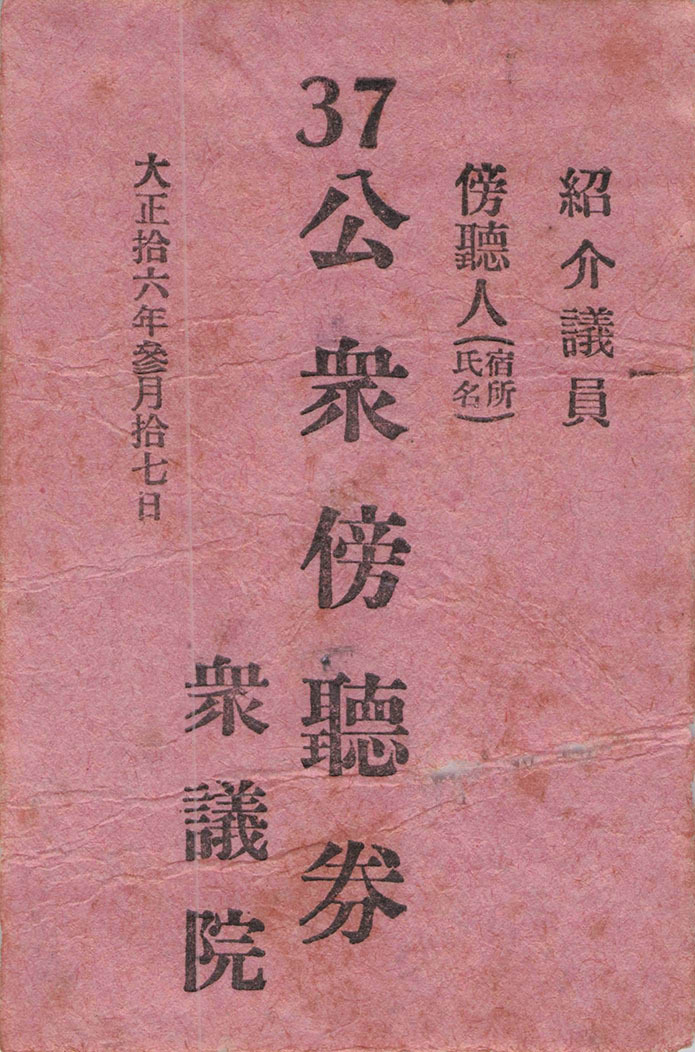 紹介議員
傍聽人(宿所氏名)
37
公衆傍聽券
衆議院
大正拾六年參月拾七日